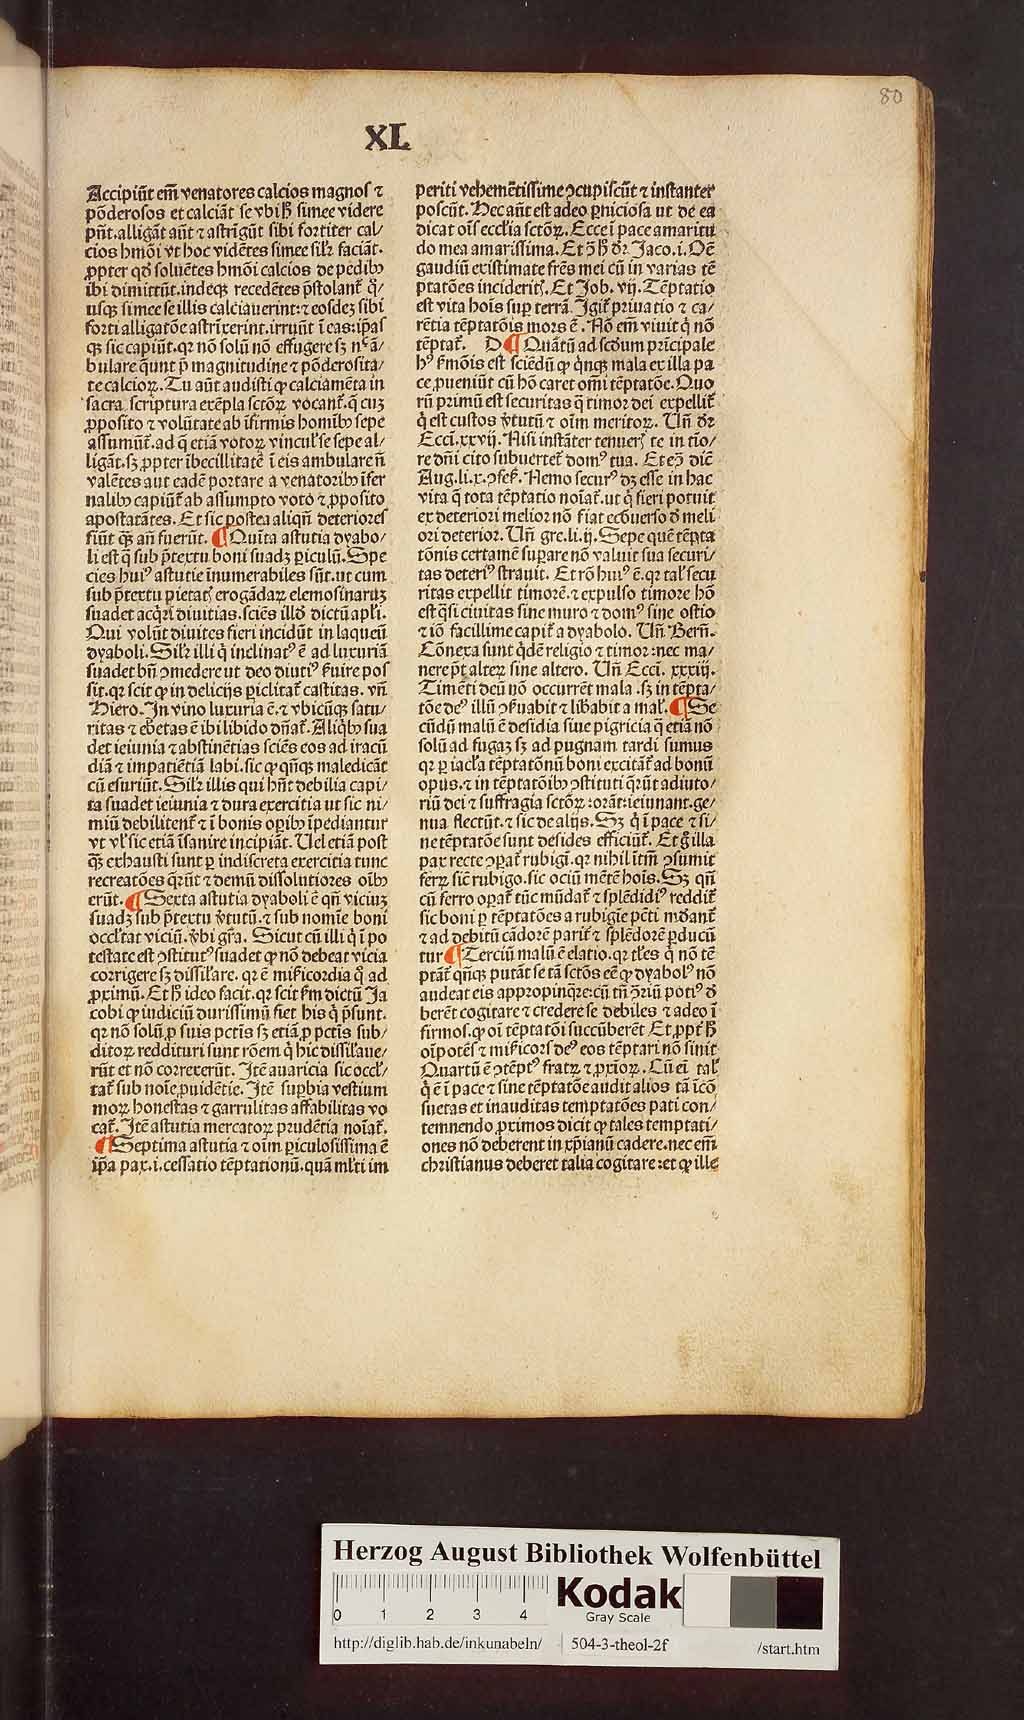 80
XL
Accipiūt em̄ venatores calcios magnos ⁊
pōderosos et calciāt se vbi hͦ simee videre
pn̄t. alligāt aūt ⁊ astrīgūt sibi fortiter cal/
cios hmōi vt hoc vidētes simee silꝛ faciāt.
ꝓpter qđ soluētes hmōi calcios de pedibꝫ
ibi dimittūt. indeqꝫ recedētes p̄stolant᷑ q̇/
usqꝫ simee se illis calciauerint: ⁊ eosdeꝫ sibi
forti alligatōe astrīxerint. irruūt ī eas: ip̄as
qꝫ sic capiūt. qꝛ nō solū nō effugere sꝫ nͨ ā/
bulare q̄unt p̄ magnitudine ⁊ pōderosita/
te calcioꝝ. Tu aūt audisti ꝙ calciamēta in
sacra scriptura exēpla sctōꝝ vocant᷑. q̄ cuꝫ
ꝓposito ⁊ volūtate ab īfirmis homībꝫ sepe
assumūt᷑. ad q̄ etiā votoꝝ vincul' se sepe al/
ligāt. sꝫ ꝓpter ībecillitatē ī eis ambulare n̄
valētes aut eadē portare a venatoribꝫ īfer
nalibꝫ capiūt᷑ ab assumpto voto ⁊ ꝓposito
apostatātes. Et sic postea aliqn̄ deteriores
fiūt qꝫ̄ an̄ fuerūt. ¶ Quīta astutia dyabo/
li est q̄ sub p̄textu boni suadꝫ ꝑiculū. Spe
cies huiꝰ astutie īnumerabiles sūt. ut cum
sub p̄textu pietat᷒ erogādaꝝ elemosinaꝝ
suadet acq̇ri diuitias. sciēs illđ dictū apl'i.
Qui volūt diuites fieri incidūt in laqueū
dyaboli. Silꝛ illi q̇ inclinatꝰ ē ad luxuriā
suadet bn̄ ꝯmedere ut deo diutiꝰ ẜuire pos
sit. qꝛ scit ꝙ in delicijs ꝑiclitat᷑ castitas. vn̄
Hiero. In vino luxuria ē. ⁊ vbicūqꝫ satu/
ritas ⁊ ebetas ē ibi libido dn̄at᷑. Aliq̇bꝫ sua
det ieiunia ⁊ abstinētias sciēs eos ad iracū
diā ⁊ impatiētiā labi. sic ꝙ qn̄qꝫ maledicāt
cū esuriūt. Silꝛ illis qui hn̄t debilia capi/
ta suadet ieiunia ⁊ dura exercitia ut sic ni/
miū debilitent᷑ ⁊ ī bonis oꝑibꝫ īpediantur
vt vl' sic etiā īsanire incipiāt. Uel etiā post
qꝫ̄ exhausti sunt ꝑ indiscreta exercitia tunc
recreatōes q̄rūt ⁊ demū dissolutiores oībꝫ
erūt. ¶ Sexta astutia dyaboli ē qn̄ viciuꝫ
suadꝫ sub p̄textu v̇tutū. ⁊ sub nomīe boni
occl'tat viciū. v̇bi gr̄a. Sicut cū illi q̇ ī po
testate est ꝯstitutꝰ suadet ꝙ nō debeat vicia
corrigere sꝫ dissil'are. qꝛ ē mīẜicordia qͣ ad
ꝓximū. Et hͦ ideo facit. qꝛ scit ẜm dictū Ja
cobi ꝙ iudiciū durissimū fiet his q̇ p̄sunt.
qꝛ nō solū ꝓ suis pctīs sꝫ etiā ꝓ pctīs sub/
ditoꝝ reddituri sunt rōem q̇ hic dissil'aue/
rūt et nō correxerūt. Itē auaricia sic occl'/
tat᷑ sub noīe ꝓuidētie. Itē suꝑbia vestium
moꝝ honestas ⁊ garrulitas affabilitas vo
cat᷑. Itē astutia mercatoꝝ prudētia noīat᷑.
¶ Septima astutia ⁊ oīm ꝑiculosissima ē
ip̄a pax. i. cessatio tēptationū. quā ml'ti im
periti vehemētissime ꝯcupiscūt ⁊ instanter
poscūt. Hec aūt est adeo ꝑniciosa ut de ea
dicat oīs eccl'ia sctōꝝ. Ecce ī pace amaritu
do mea amarissima. Et ꝓ hͦ dꝛ Jaco. i. Oē
gaudiū existimate frēs mei cū in varias tē
ptatōes incideritis. Et Job. vij. Tēptatio
est vita hoīs suꝑ terrā. Igit᷑ priuatio ⁊ ca/
rētia tēptatōis mors ē. Nō em̄ viuit q̇ nō
tēptat᷑. D ¶ Quātū ad scđum prīcipale
hꝰ ẜmōis est sciēdū ꝙ q̇nqꝫ mala ex illa pa
ce ꝓueniūt cū hō caret omī tēptatōe. Quo
rū primū est securitas q̄ timor dei expellit᷑
q̇ est custos v̇tutū ⁊ oīm meritoꝝ. Un̄ dꝛ
Ecci. xxvij. Nisi instāter tenuer᷒ te in tīo/
re dn̄i cito subuertet᷑ domꝰ tua. Et eꝓ dic̄
Aug. li. x. ꝯfes. Nemo securꝰ dꝫ esse in hac
vita q̄ tota tēptatio noīat᷑. ut q̇ fieri potuit
ex deteriori melior nō fiat ecōuerso đ meli
ori deterior. Un̄ gre. li. ij. Sepe quē tēpta
tōnis certamē suꝑare nō valuit sua securi/
tas deteriꝰ strauit. Et rō huiꝰ ē. qꝛ tal' secu
ritas expellit timorē. ⁊ expulso timore hō
est q̄si ciuitas sine muro ⁊ domꝰ sine ostio
⁊ iō facillime capit᷑ a dyabolo. Un̄ Bern̄.
Cōnexa sunt q̇dē religio ⁊ timor: nec ma/
nere pt̄ alteꝝ sine altero. Un̄ Ecci. xxxiij.
Timēti deū nō occurrēt mala. sꝫ in tēpta/
tōe deꝰ illū ꝯẜuabit ⁊ lib̄abit a mal᷒. ¶ Se
cūdū malū ē desidia siue pigricia q̄ etiā nō
solū ad fugaꝫ sꝫ ad pugnam tardi sumus
qꝛ ꝑ iacl'a tēptatōnū boni excitāt᷑ ad bonū
opus. ⁊ in tēptatōibꝫ ꝯstituti q̄rūt adiuto/
riū dei ⁊ suffragia sctōꝝ: orāt: ieiunant. ge/
nua flectūt. ⁊ sic de alijs. Sꝫ q̇ ī pace ⁊ si/
ne tēptatōe sunt desides efficiūt᷑. Et ḡ illa
pax recte ꝯꝑat᷑ rubigī. qꝛ nihil ītm̄ ꝯsumit
ferꝝ sic̄ rubigo. sic ociū mētē hoīs. Sꝫ qn̄
cū ferro oꝑat᷑ tūc mūdat᷑ ⁊ splēdidiꝰ reddit᷑
sic boni ꝑ tēptatōes a rubigīe pctī mūdant᷑
⁊ ad debitū cādorē parit᷑ ⁊ splēdorē ꝑducū
tur ¶ Terciū malū ē elatio. qꝛ tl'es q̇ nō tē
ptāt᷑ qn̄qꝫ putāt se tā sctōs eē ꝙ dyabolꝰ nō
audeat eis appropinq̄re: cū tn̄ ꝯriū potiꝰ đ
berēt cogitare ⁊ credere se debiles ⁊ adeo ī
firmos. ꝙ oī tēptatōi succūberēt Et ꝓpt᷑ hͦ
oīpotēs ⁊ mīẜicors deꝰ eos tēptari nō sinit
Quartū ē ꝯtēptꝰ fratꝝ ⁊ ꝓxīoꝝ. Cū ei tal'
q̇ ē ī pace ⁊ sine tēptatōe audit alios tā īcō
suetas et inauditas temptatōes pati con/
temnendo ꝓximos dicit ꝙ tales temptati/
ones nō deberent in xp̄ianū cadere. nec em̄
christianus deberet talia cogitare: et ꝙ ille
Herzog August Bibliothek Wolfenbüttel
0 1 2 3 4
Kodak
Gray Scale
http://diglib.hab.de/inkunabeln/ 504-3-theol-2f /start.htm